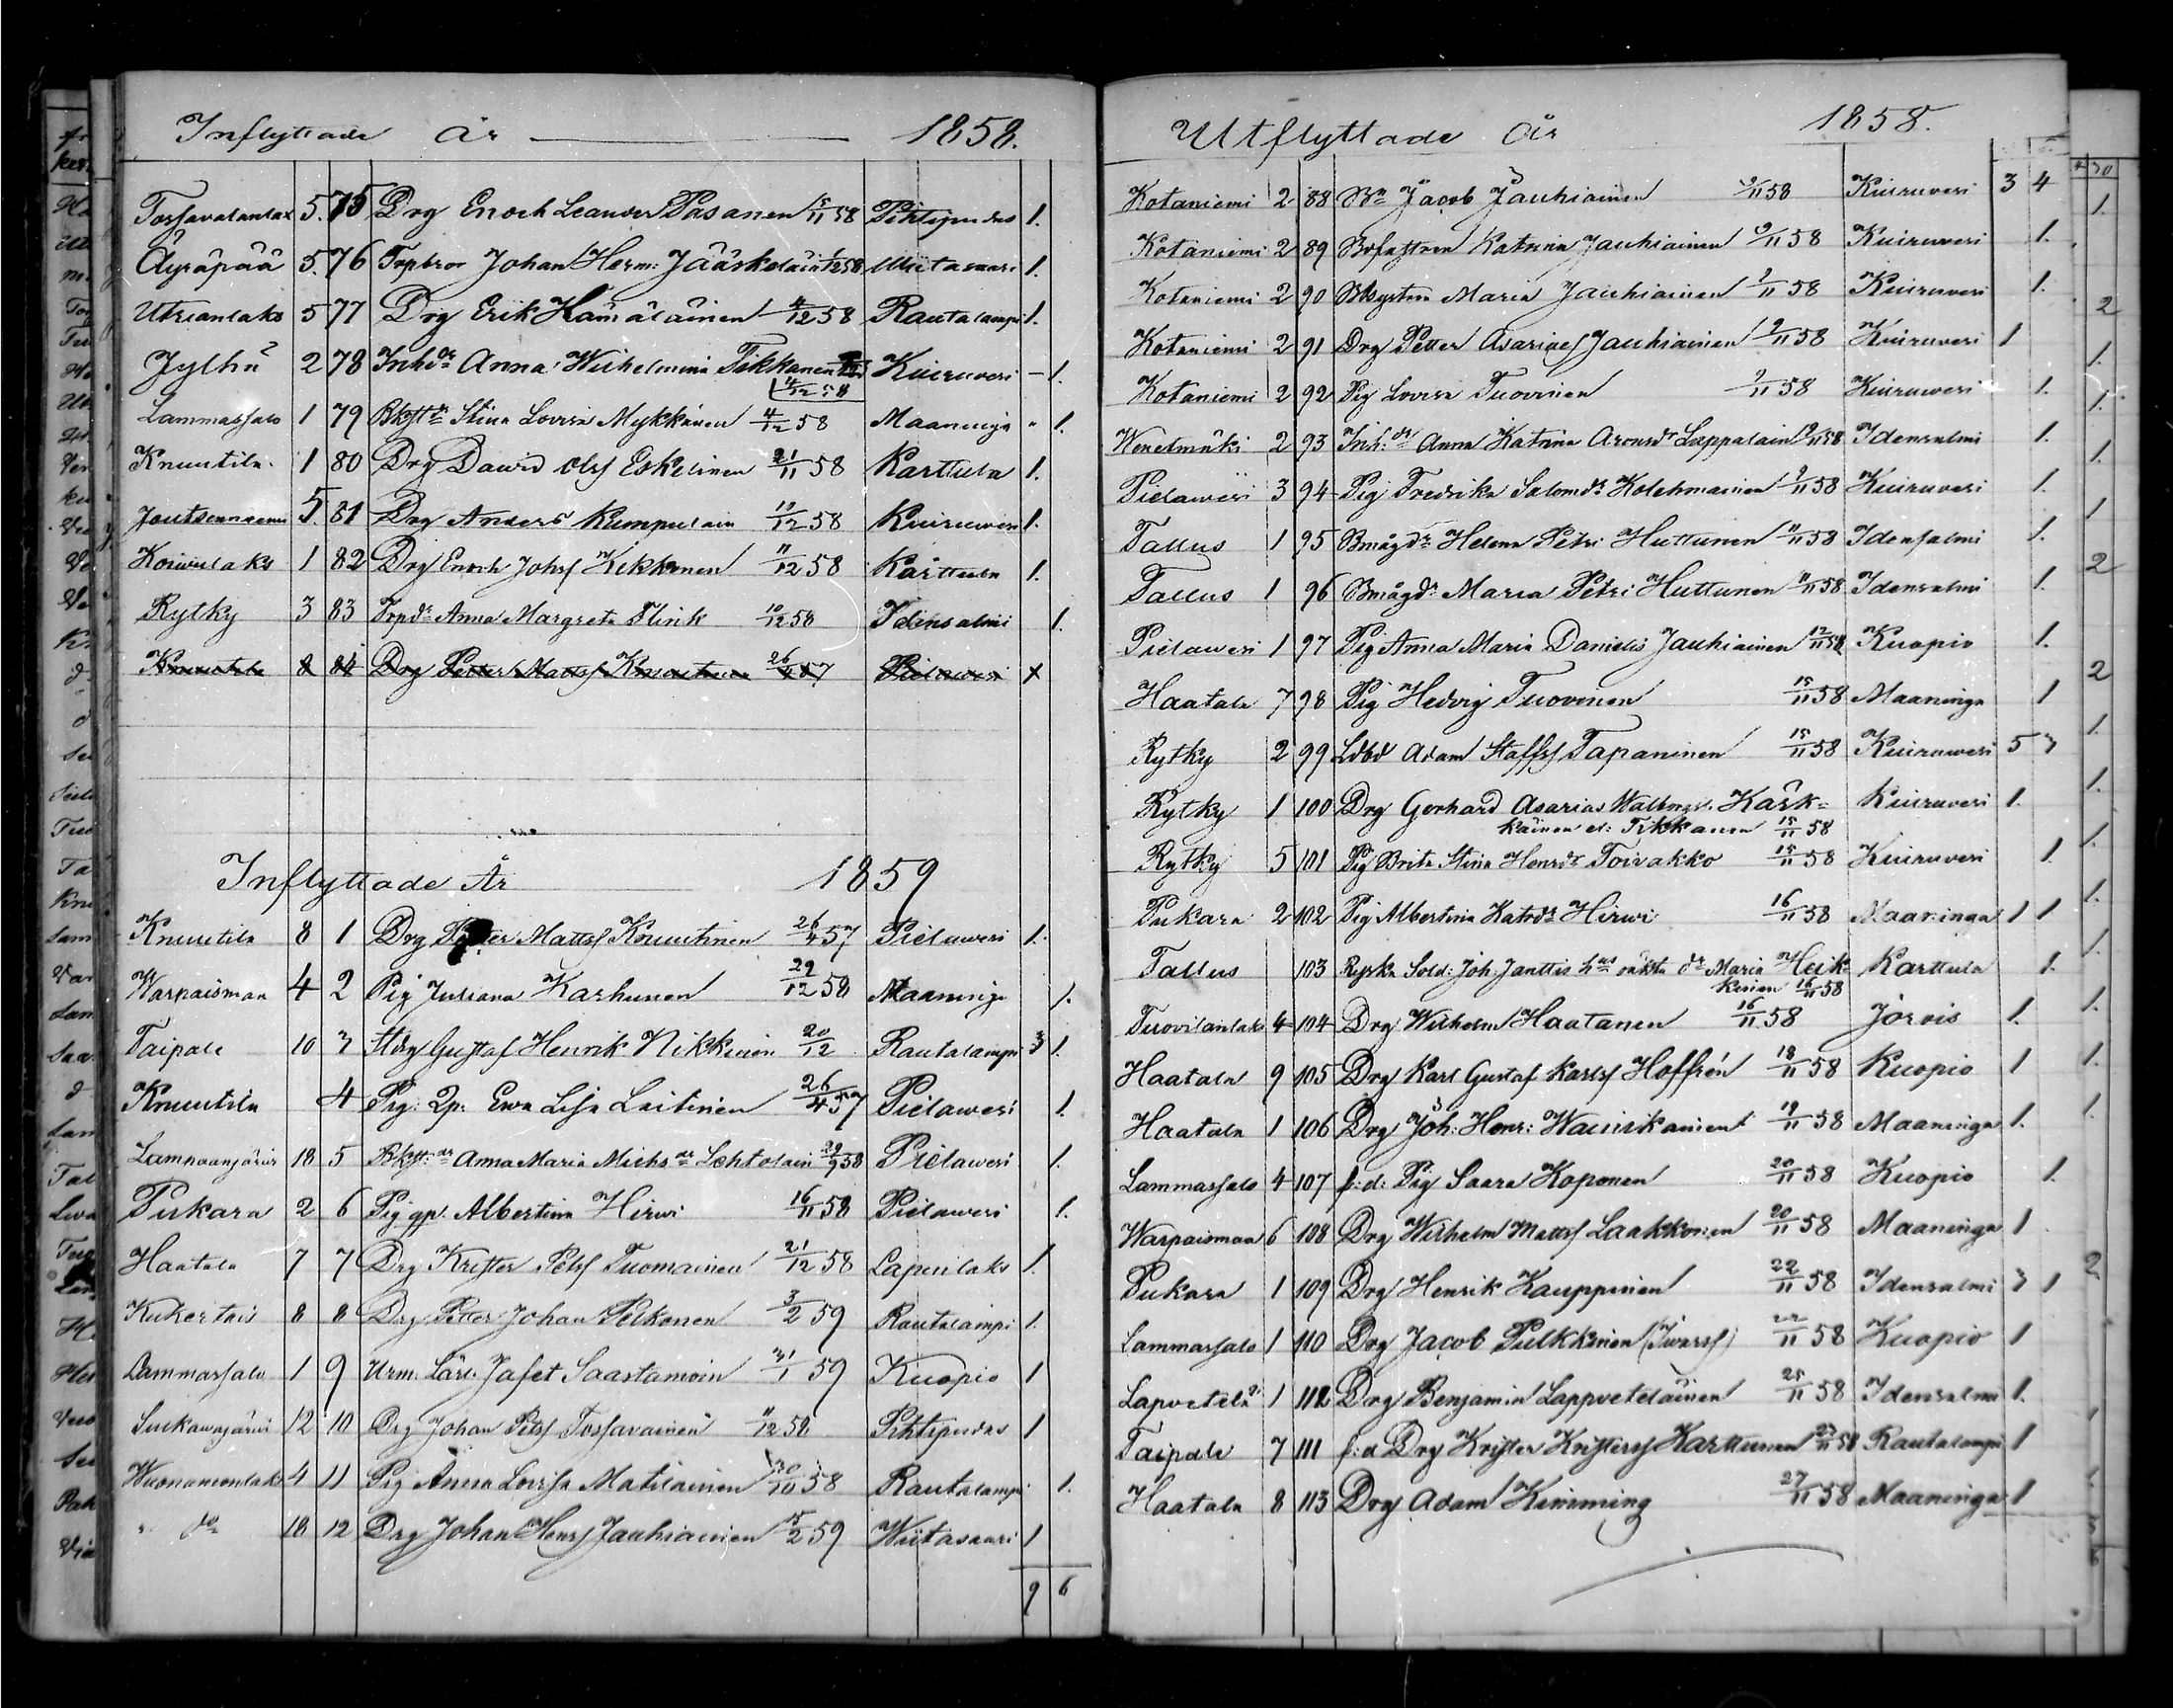 Inflyttade År 1858.
Tossavalanlax 5. 75 Drg Enoch Leander Pasanen 5/11 58 Pihtipudas 1.
Äyräpää 5. 76 Torpbror Johan Herm: Jääskeläin 1/12 58 Wiitasaari 1.
Utrianlaks 5 77 Drg Erik Hämäläinen 4/12 58 Rautalampi 1.
Jylhä 2 78 Inhdr Anna Wilhelmina Tikkanen Kiuruvesi - 1.
4/12 58
Lammassalo 1 79 Bkftdr Stina Lovisa Mykkänen 4/12 58 Maaninga " 1.
Knuutila 1 80 Drg Dawid Olss Eskelinen 21/11 58 Karttula 1.
Joutsenniemi 5. 81 Drg Anders Kumpulain 10/12 58 Kiuruwesi 1.
Koiwulaks 1 82 Drg Enoch Johss Kekkonen 11/12 58 Karttula 1.
Rytky 3 83 Torpdr Anna Margreta Flink 10/12 58 Idensalmi 1.
Knuutila 8 84 Drg Petter Mattss Knuutinen 26/4 57 Pielawesi 1
Inflyttade År 1859
Knuutila 8 1 Drg Petter Mattss Knuutinen 26/4 57 Pielawesi 1.
Warpaismaa 4 2 Pig Juliana Karhunen 29/12 58 Maaninga 1.
Taipale 10 3 Hdrg Gustaf Henrik Nikkinen 20/12 Rautalampi 3 1.
Knuutila 4 Pig: Qp: Ewa Lisa Laitinen 26/4 57 Pielawesi 1.
Lampaanjärwi 18 5 Bkft:dr Anna Maria Michsdr Lehtolain 29/9 58 Pielawesi 1.
Pukara 2 6 Pig qp. Albertina Hirwi 16/11 58 Pielawesi 1.
Haatala 7 7 Drg Krister Petss Tuomainen 21/12 58 Lapinlaks 1.
Kukertais 8 8 Drg Petter Johan Pelkonen 3/2 59 Rautalampi 1.
Lammassalo 1 9 Urm. Lärl. Jafet Saastamoin 31/1 59 Kuopio 1
Sulkawajärwi 12 10 Drg Johan Petss Tossavainen 11/12 58 Pihtipudas 1
Wuonamonlaks 4 11 Pig Anna Lovisa Matilainen 30/10 58 Rautalampi 1.
" do 18 12 Drg Johan Henss Jauhiainen 15/2 59 Wiitasaari 1
9 6
Utflyttade år 1858.
Kotaniemi 2 88 Bn Jacob Jauhiainen 9/11 58 Kiuruvesi 3 4
Kotaniemi 2 89 Katrina Jauhiainen 9/11 58 Kiuruvesi 1.
Kotaniemi 2 90 Maria Jauhiainen 9/11 58 Kiuruvesi 1.
Kotaniemi 2 91 Drg Petter Asariaes Jauhiainen 9/11 58 Kiuruvesi 1
Kotaniemi 2 92 Pig Lovisa Tuovinen 9/11 58 Kiuruwesi 1.
Wenetmäki 2 93 Inh:dr Anna Katrina Aronsdr Lappalain 9/11 58 Idensalmi 1.
Pielawesi 3 94 Pig Fredrika Salomdr Kolehmainen 9/11 58 Kiuruvesi 1.
Tallus 1 95 Bmågdr Helena Petri Huttunen 11/11 58 Idensalmi 1.
Tallus 1 96 Bmågdr Maria Petri Huttunen 11/11 58 Idensalmi 1.
Pielawesi 1 97 Pig Anna Maria Danielis Jauhiainen 12/11 58 Kuopio 1.
Haatala 7 98 Pig Hedvig Tuovinen 15/11 58 Maaninga 1
Rytky 2 99 Ldbd Adam Staffss Tapaninen 15/11 58 Kiuruwesi 5 3
Rytky 1 100 Drg Gerhard Asarias Kärk= Kiuruvesi 1.
käinen el: Tikkanen 15/11 58
Rytky 5 101 Pig Brita Stina Henrdr Toivakko 15/11 58 Kiuruvesi 1.
Pukara 2 102 Pig Albertina Katrdr Hirwi 16/11 58 Maaninga 1 1
Tallus 103 Ryska Sold: Joh. Janttis hus oäkta dr Maria Heik= Karttula 1.
kinen 16/11 58
Tuovilanlaks 4 104 Drg Wilhelm Haatanen 16/11 58 Jorois 1.
Haatala 9 105 Drg Karl Gustaf Karlss Hoffrén 18/11 58 Kuopio 1
Haatala 1 106 Drg Joh: Henr: Wainikainen 19/11 58 Maaninga 1.
Lammassalo 4 107 f:d: Pig Saara Koponen 20/11 58 Kuopio 1.
Warpaismaa 6 108 Drg Wilhelm Mattss Laakkonen 20/11 58 Maaninga 1
Pukara 1 109 Drg Henrik Kauppinen 22/11 58 Idensalmi 3 1
Lammassalo 1 110 Drg Jacob Pulkkinen (Iwarss) 22/11 58 Kuopio 1
Lapvetelä 1 112 Drg Benjamin Lappveteläinen 25/11 58 Idensalmi 1.
Taipale 7 111 f:d Drg Krister Kristerss Karttunen 23/11 58 Rautalampi 1
Haatala 8 113 Drg Adam Kinming 27/11 58 Maaninga 1